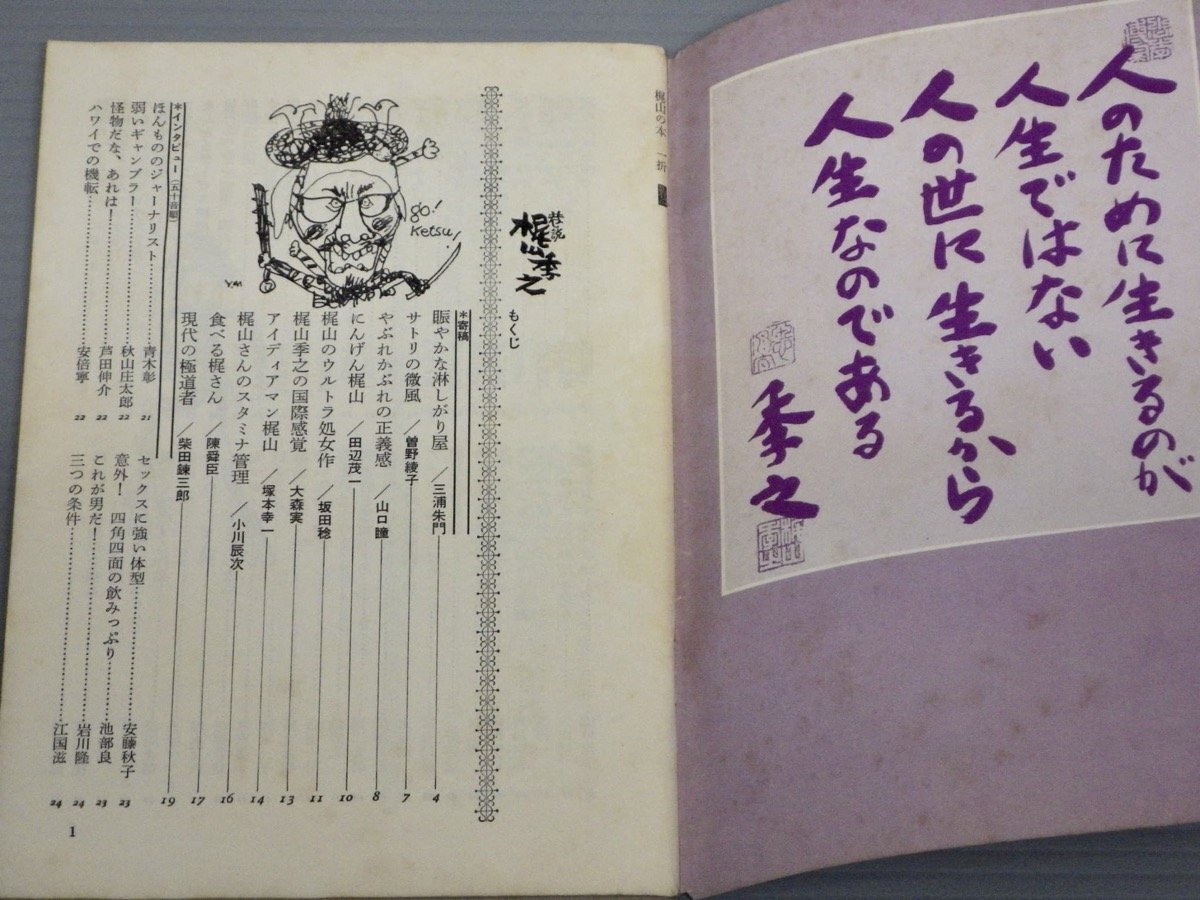 人のために生きるのが
人生ではない
人の世に生きるから
人生なのである
季之
梶山の本 一折
梶山季之
もくじ
＊寄稿
賑やかな淋しがり屋／三浦朱門 4
サトリの微風／曽野綾子 7
やぶれかぶれの正義感／山口瞳 8
にんげん梶山／田辺茂一 10
梶山のウルトラ処女作／坂田稔 11
梶山季之の国際感覚／大森実 13
アイディアマン梶山／塚本幸一 14
梶山さんのスタミナ管理／小川辰次 16
食べる梶さん／陳舜臣 17
現代の極道者／柴田錬三郎 19
go!
Ketsu!
＊インタビュー（五十音順）
ほんもののジャーナリスト 青木彰 21
弱いギャンブラー 秋山庄太郎 22
怪物だな、あれは！ 芦田伸介 22
ハワイでの機転 安倍寧 22
セックスに強い体型 安藤秋子 23
意外！ 四角四面の飲みっぷり 池部良 23
これが男だ！ 岩川隆 24
三つの条件 江国滋 24
1